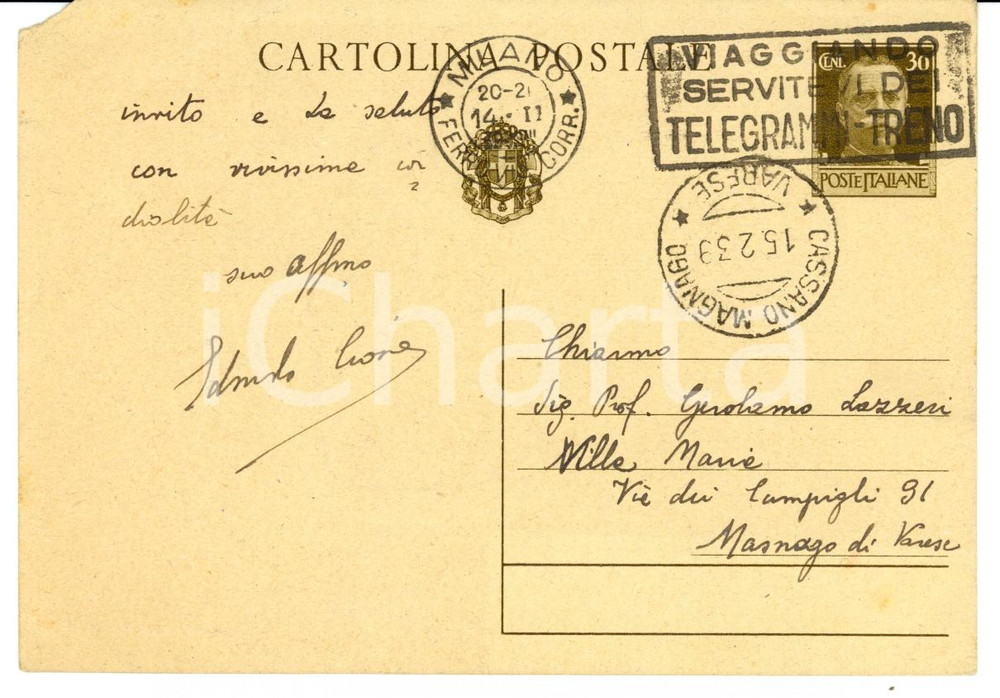 CARTOLINA POSTALE
MILANO
20-21
14. II
FERR. CORR.
VIAGGIANDO
SERVITEVI DEI
TELEGRAMMI-TRENO
CENT. 30
POSTE ITALIANE
VARESE
15.2.39
CASSANO MAGNAGO
invito e La saluto
con vivissime cor
dialità
suo affmo
Chiarmo
Sig. Prof. Gerolamo Lazzeri
Villa Maria
Via dei Campigli 91
Masnago di Varese
iCharta